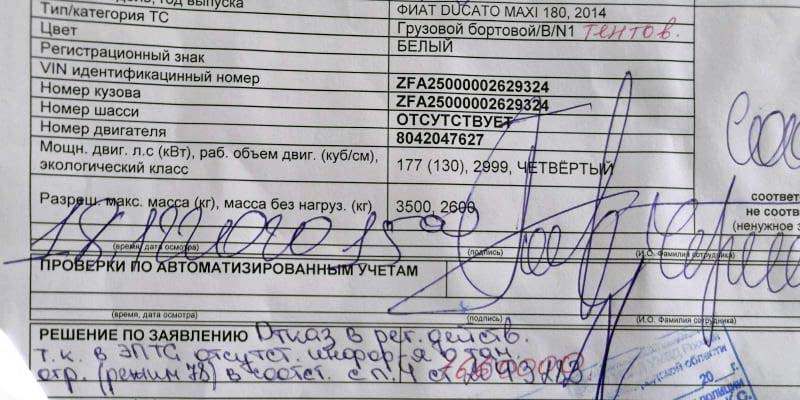 дель, год выпуска ФИАТ DUCATO MAXI 180, 2014
Тип/категория ТС Грузовой бортовой/B/N1 тентов.
Цвет БЕЛЫЙ
Регистрационный знак
VIN идентификацинный номер ZFA25000002629324
Номер кузова ZFA25000002629324
Номер шасси ОТСУТСТВУЕТ
Номер двигателя 8042047627
Мощн. двиг. л.с (кВт), раб. объем двиг. (куб/см), 177 (130), 2999, ЧЕТВЁРТЫЙ
экологический класс
Разреш. макс. масса (кг), масса без нагруз. (кг) 3500, 2600
соответ
не соотв
(ненужное з
18.12.2020 15
(время, дата осмотра) (подпись) (И.О. Фамилия сотрудника)
ПРОВЕРКИ ПО АВТОМАТИЗИРОВАННЫМ УЧЕТАМ
(время, дата осмотра) (подпись) (И.О. Фамилия сотрудника)
РЕШЕНИЕ ПО ЗАЯВЛЕНИЮ Отказ в рег. действ.
т.к. в ЭПТС отсутст. информ-я о там.
огр. (режим 78) в соотст. с п. 4 ст. 20
20 г.